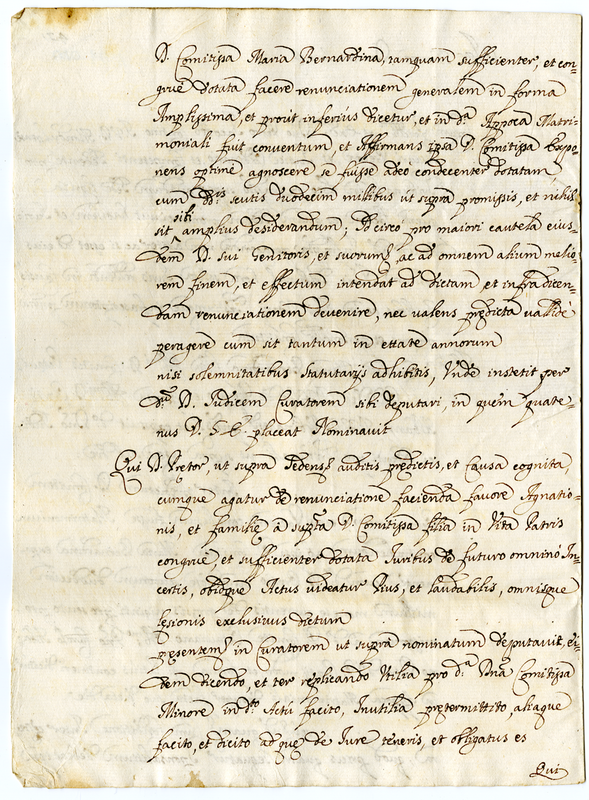 D. Comitissa Maria Bernardina, tamquam sufficienter, et con=
gruè dotata facere renunciationem generalem in forma
Amplissima, et prout inferius dicetur, et in d.ª Appoca Matri=
moniali fuit conventum, et Affirmans ipsa D. Comitissa Expo=
nens optimè agnoscere se fuisse adeò condecenter dotatam
cum d.is scutis duodecim millibus ut suprà promissis, et nihil
sibi
sit amplius desiderandum; Id circò pro maiori cautela eius=
dem D. sui Genitoris, et suorum, ac ad omnem alium melio=
rem finem, et effectum intendat ad dictam, et infradicen=
dam renunciationem devenire, nec valens predicta vallidè
peragere cum sit tantum in ettate annorum
nisi solemnitatibus Statutarijs adhibitis, Unde institit per
d.um D. Iudicem Curatorem sibi deputari, in quem quate=
nus D. S. E. placeat Nominavit
Qui D. Pretor, ut supra sedens, auditis predictis, et Causa cognita,
cumque agatur de renunciatione facienda favore Agnatio=
nis, et familie à sup.ta D. Comitissa filia in Vita Patris
congruè, et sufficienter dotata Iuribus de futuro omninò In=
certis, obidque Actus videatur Pius, et laudabilis, omnisque
lesionis exclusivus dictum
presentem, in Curatorem ut suprà nominatum deputavit, ei=
dem dicendo, et ter replicando, Utilia pro d.ª Dna Comitissa
Minore in d.to Actu facito, Inutilia pretermittito, aliaque
facito, et dicito ad que de Iure teneris, et obligatus es
Qui